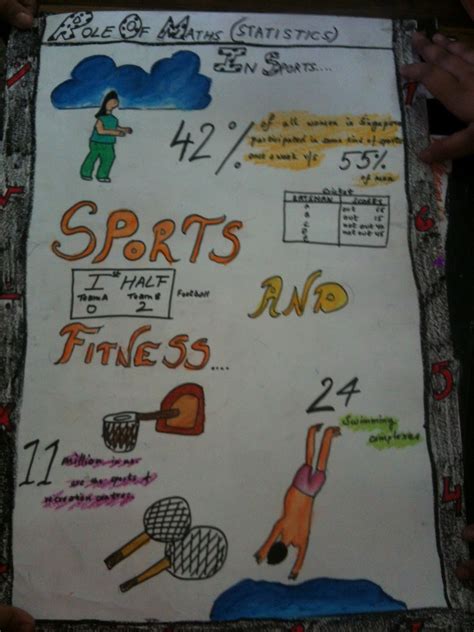 ROLE OF MATHS (STATISTICS)
IN SPORTS....
42%
of all women in
participated in some kind of sports
once a week v/s
55%
of men
Cricket
BATSMAN SCORES
A out
B not out 15
C
D
E not out 45
SPORTS
Ist HALF
TEAM A TEAM B
0 2
Football
AND
FITNESS....
24
Swimming
complexes
11
million
use the sports &
recreation centres.
5
4